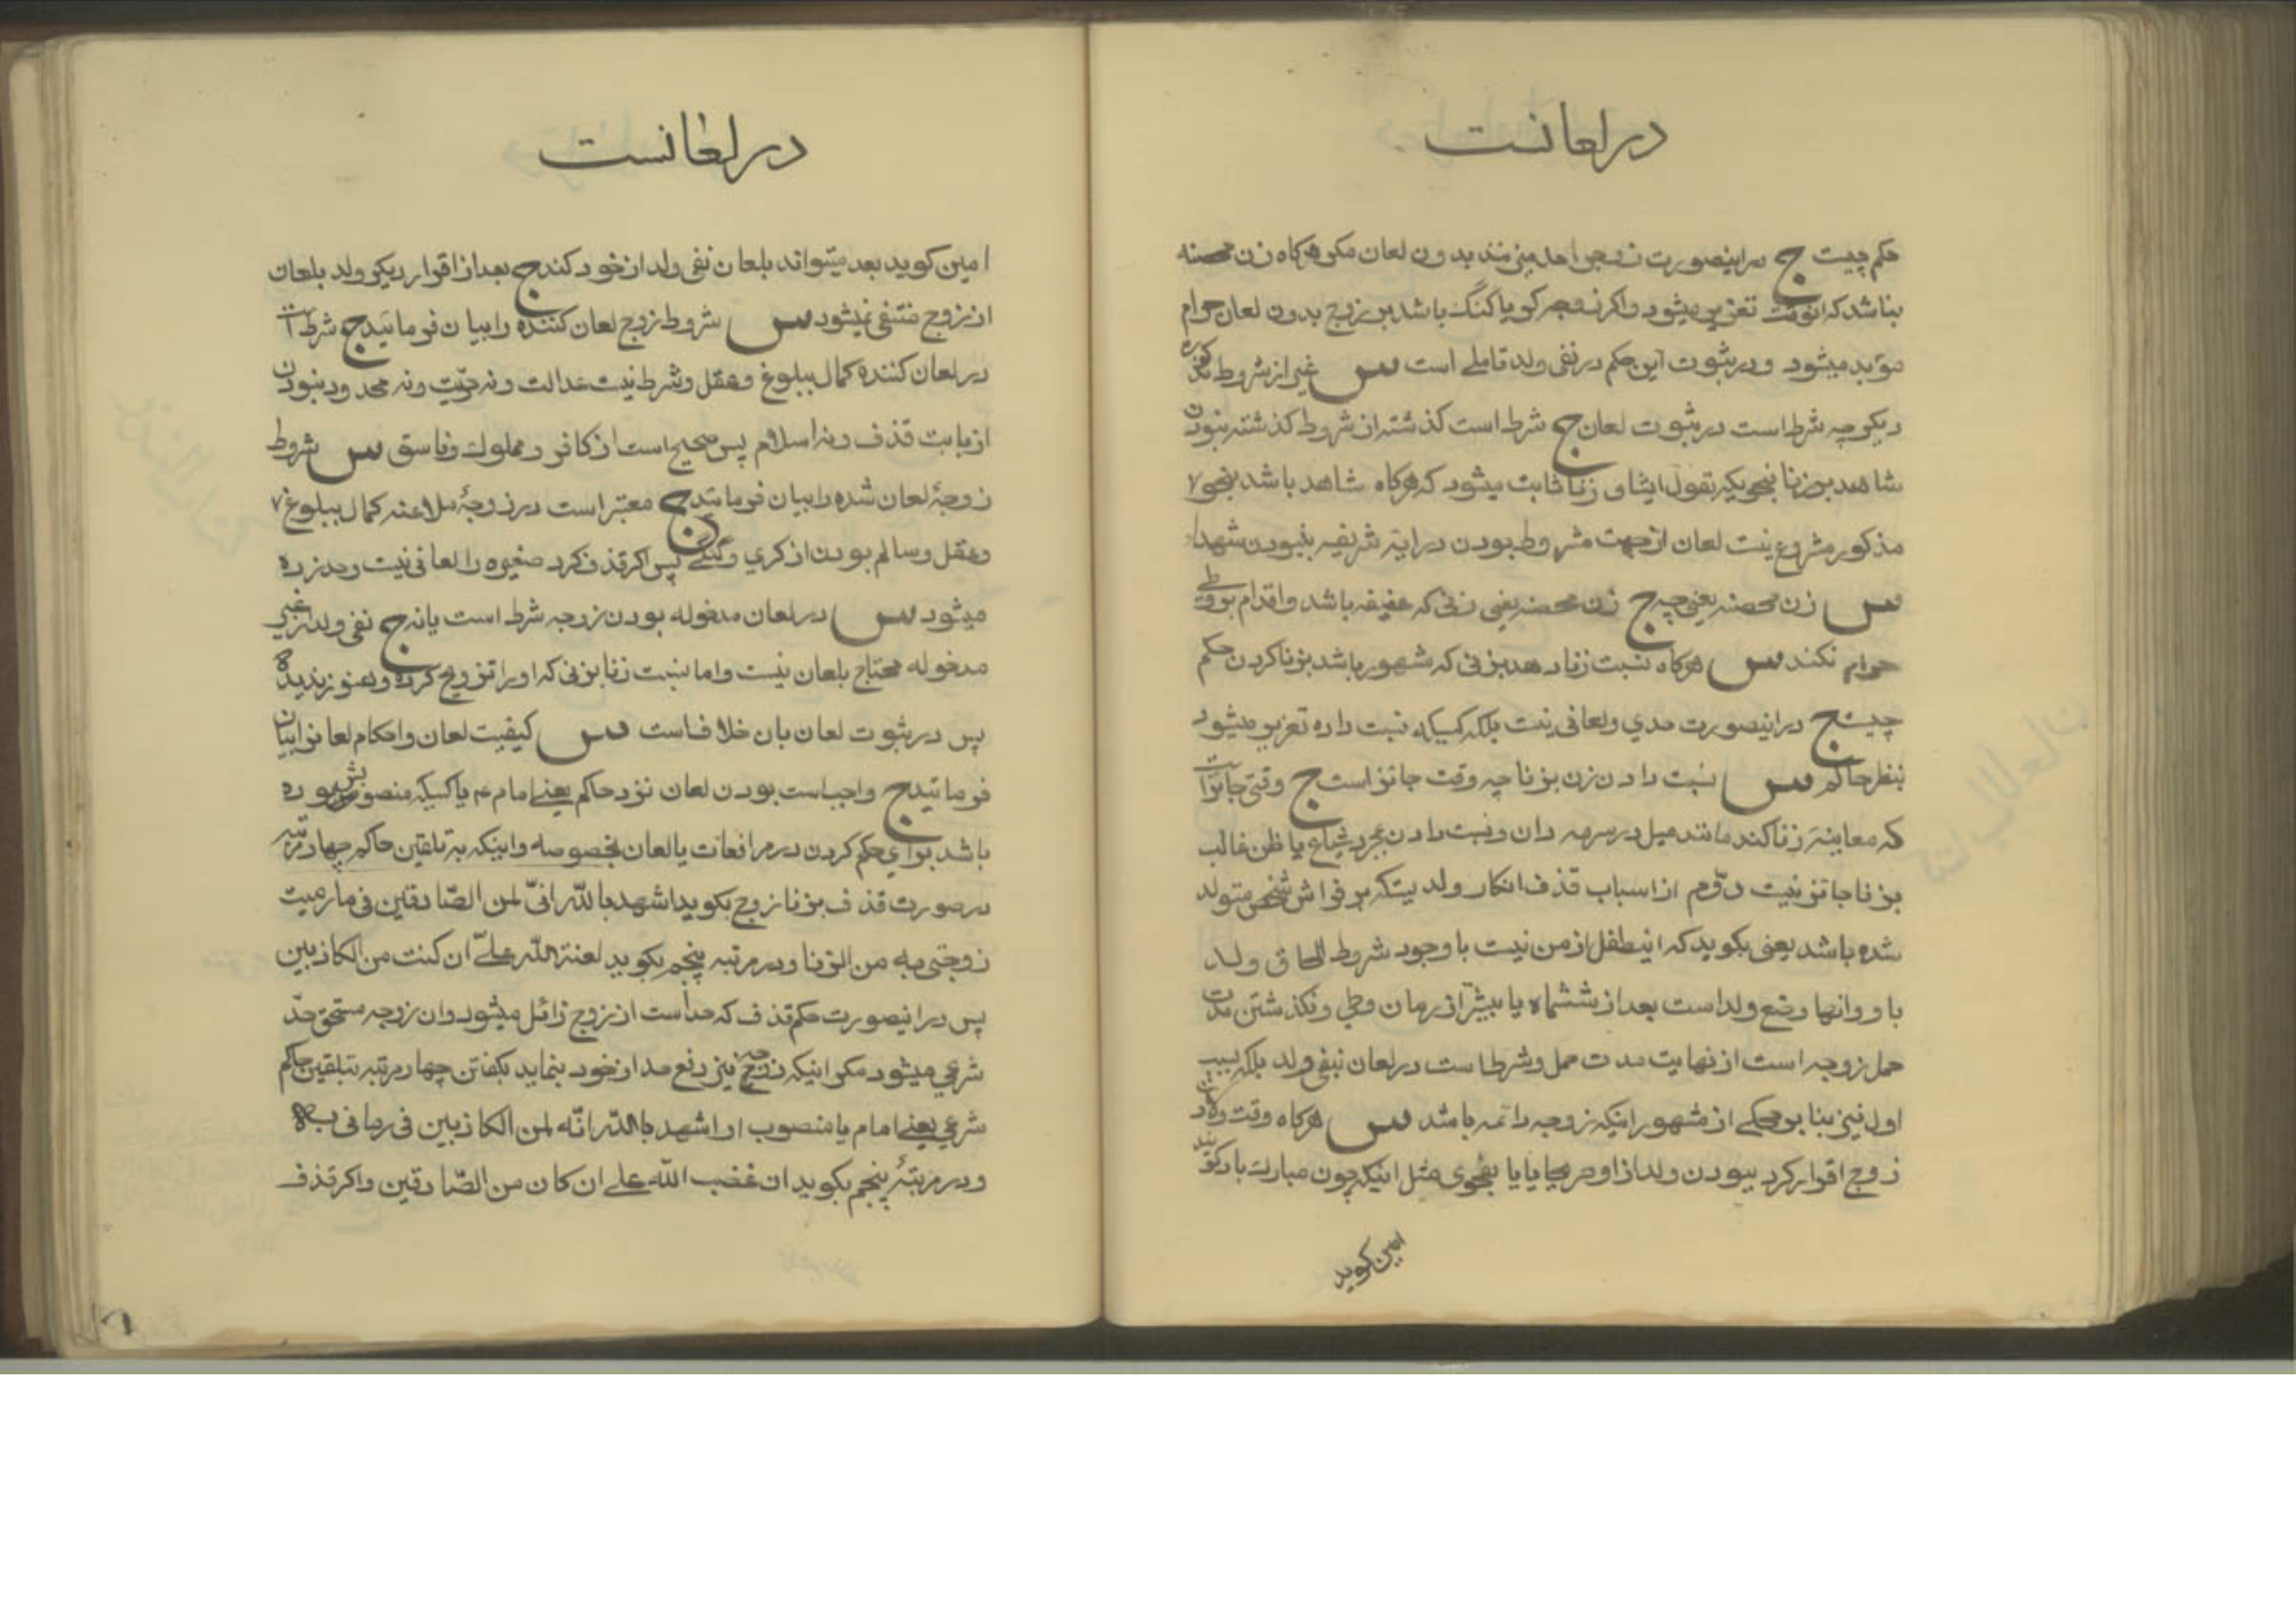 در لعانست
حکم چیست ج در اینصورت زوج را حد میزنند بدون لعان مکر هرکاه زن محصنه
نباشد که انوقت تعزیر میشود و اکر زوجه کر و یا کنک باشد بر زوج بدون لعان حرام
مؤبد میشود و در ثبوت این حکم در نفی ولد تاملی است س غیر از شروط مذکوره
دیکر چه شرط است در ثبوت لعان ج شرط است کذشته از شروط کذشته نبودن
شاهد بر زنا بنحویکه بقول ایشان زنا ثابت میشود که هرکاه شاهد باشد بنحو
مذکور مشروع نیست لعان از جهت مشروط بودن در ایه شریفه بنبودن شهداء
س زن محصنه یعنی چه ج زن محصنه یعنی زنی که عفیفه باشد و اقدام بوطی
حرام نکند س هرکاه نسبت زنا دهد بزنی که مشهور باشد بزنا کردن حکم
چیست ج در اینصورت حدی و لعانی نیست بلکه کسیکه نسبت داده تعزیر میشود
بنظر حاکم س نسبت دادن زن بزنا چه وقت جائز است ج وقتی جائز است
که معاینه زنا کند مانند میل در سرمه دان و نسبت دادن بمجرد شیاع یا ظن غالب
بزنا جائز نیست دوّم از اسباب قذف انکار ولدیستکه بر فراش شخص متولد
شده باشد یعنی بکوید که اینطفل از من نیست با وجود شروط الحاق ولد
باو و انها وضع ولد است بعد از ششماه یا بیشتر از زمان وطی و نکذشتن مدت
حمل زوجه است از نهایت مدت حمل و شرط است در لعان بنفی ولد بلکه بسبب
اول نیز بنا بر حکمی از مشهور اینکه زوجه دائمه باشد س هرکاه وقت ولادت
زوج اقرار کرد ببودن ولد از او صریحا یا بفحوی مثل اینکه چون مبارک باد کویند
امین کوید
در لعانست
امین کوید بعد میتواند بلعان نفی ولد از خود کند ج بعد از اقرار دیکر ولد بلعان
از زوج منتفی نمیشود س شروط زوج لعان کننده را بیان فرمائید ج شرط است
در لعان کننده کمال ببلوغ و عقل و شرط نیست عدالت و نه حرّیت و نه محدود نبودن
از بابت قذف و نه اسلام پس صحیح است از کافر و مملوک و فاسق س شروط
زوجهٔ لعان شده را بیان فرمائید ج معتبر است در زوجهٔ ملاعنه کمال ببلوغ
و عقل و سالم بودن از کری و کنکی پس اکر قذف کرد صغیره را لعانی نیست و حد زده
میشود س در لعان مدخوله بودن زوجه شرط است یا نه ج نفی ولد از غیر
مدخوله محتاج بلعان نیست و اما نسبت زنا بزنی که او را تزویج کرده و هنوز ندیده
پس در ثبوت لعان بان خلافست س کیفیت لعان و احکام لعانرا بیان
فرمائید ج واجب است بودن لعان نزد حاکم یعنی امام ع یا کسیکه منصوبش بوده
باشد برای حکم کردن در مرافعات یا لعان بخصوصه و اینکه به تلقین حاکم چهار مرتبه
در صورت قذف بزنا زوج بکوید اشهد بالله انّی لمن الصّادقین فی ما رمیت
زوجتی به من الزنا و در مرتبه پنجم بکوید لعنة الله علیّ ان کنت من الکاذبین
پس در اینصورت حکم قذف که حد است از زوج زائل میشود و ان زوجه مستحق حدّ
شرعی میشود مکر اینکه زوجه نیز دفع حد از خود بنماید بکفتن چهار مرتبه بتلقین حاکم
شرعی یعنی امام یا منصوب او اشهد بالله انّه لمن الکاذبین فی رمانی به
و در مرتبهٔ پنجم بکوید ان غضب الله علی ان کان من الصّادقین و اکر قذف